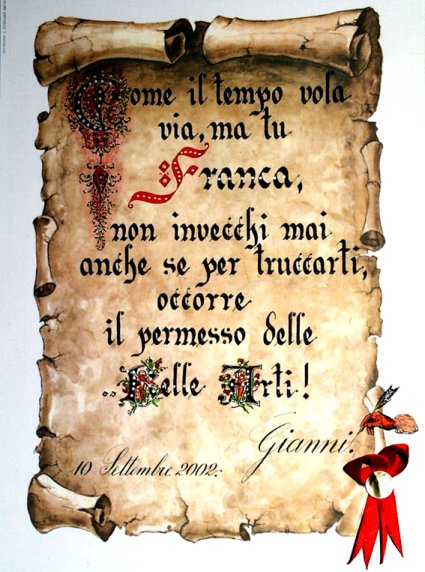 Come il tempo vola
via, ma tu
Franca,
non invecchi mai
anche se per truccarti,
occorre
il permesso delle
..Belle Arti!
Gianni.
10 Settembre 2002.